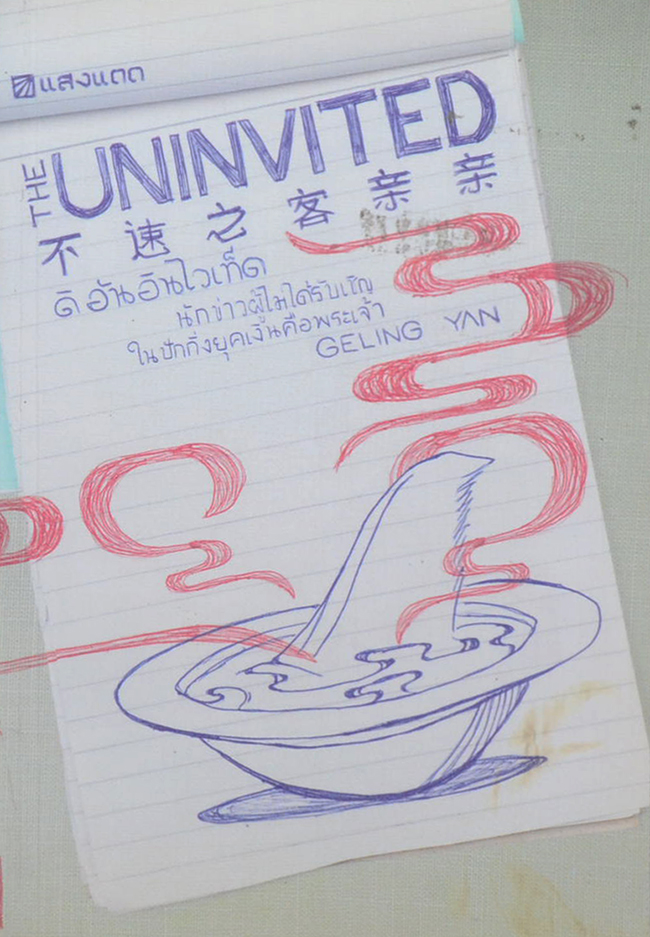 แสงแดด
THE UNINVITED
不速之客亲亲
ดิ อันอินไวเท็ด
นักข่าวผู้ไม่ได้รับเชิญ
ในปักกิ่งยุคเงินคือพระเจ้า
GELING YAN